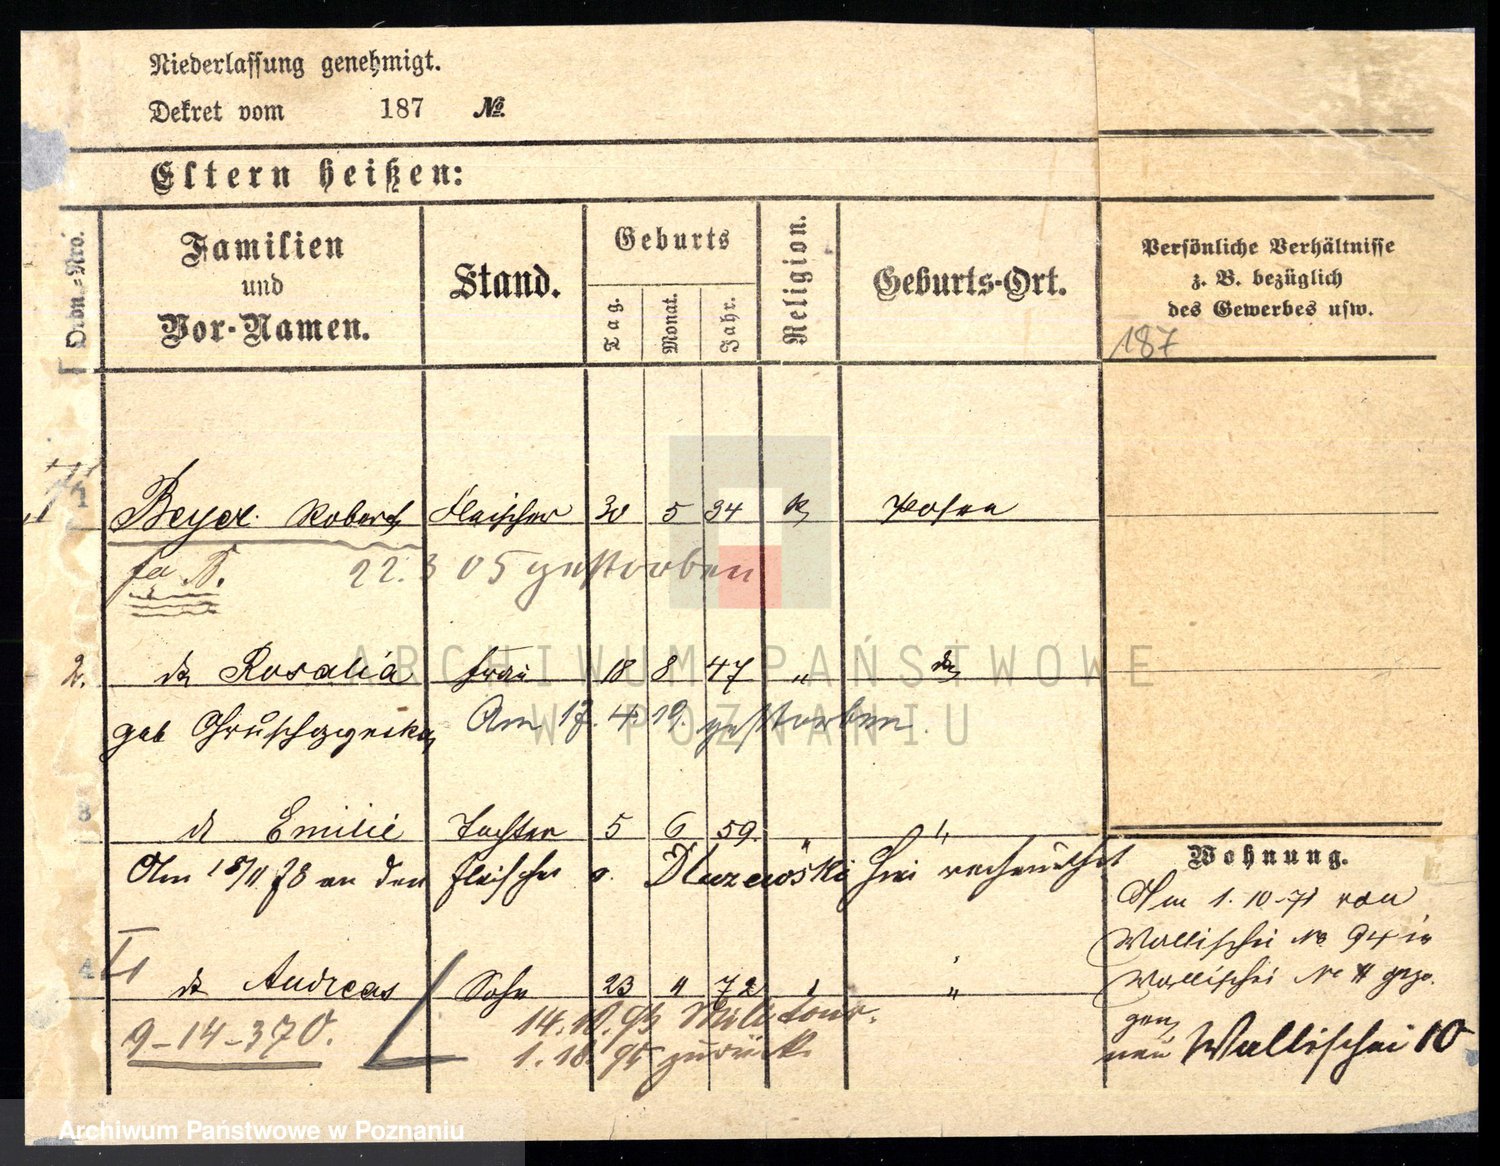 Niederlassung genehmigt.
Dekret vom 187 №.
Eltern heißen:
Ordn.-Nro.
Familien
und
Vor-Namen.
Stand.
Geburts
Tag.
Monat.
Jahr.
Religion.
Geburts-Ort.
Persönliche Verhältnisse
z. B. bezüglich
des Gewerbes usw.
187
1 Beyer Robert Fleischer 30 5 34 k Posen
22. 3 05 gestorben
2. do Rosalia Frau 18 8 47 " do
geb Am 17. 4. 19. gestorben.
3 do Emilie Tochter 5 6 59. " "
Am 18/11 78 an den Fleischer verheirathet
4 do Andreas Sohn 23 11 72 " "
9-14-370.
14. 10. 93 Militair.
zurück.
Wohnung.
Am 1. 10-71 von
Wallischei No 94 in
Wallischei No 4 gezo-
gen
neu Wallischei 10
ARCHIWUM PAŃSTWOWE
W POZNANIU
Archiwum Państwowe w Poznaniu